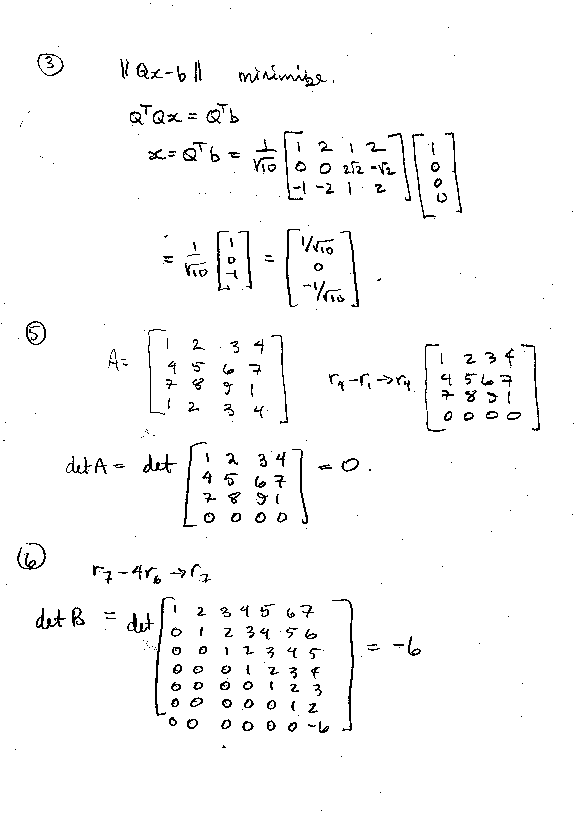 ③ ‖Qx-b‖ minimize.
QᵀQx = Qᵀb
x = Qᵀb = 1/√10 [1 2 1 2; 0 0 2√2 -√2; -1 -2 1 2] [1; 0; 0; 0]
= 1/√10 [1; 0; -1] = [1/√10; 0; -1/√10].
⑤ A = [1 2 3 4; 4 5 6 7; 7 8 9 1; 1 2 3 4] r₄-r₁→r₄ [1 2 3 4; 4 5 6 7; 7 8 9 1; 0 0 0 0]
det A = det [1 2 3 4; 4 5 6 7; 7 8 9 1; 0 0 0 0] = 0.
⑥ r₇-4r₆→r₇
det B = det [1 2 3 4 5 6 7; 0 1 2 3 4 5 6; 0 0 1 2 3 4 5; 0 0 0 1 2 3 4; 0 0 0 0 1 2 3; 0 0 0 0 0 1 2; 0 0 0 0 0 0 -6] = -6